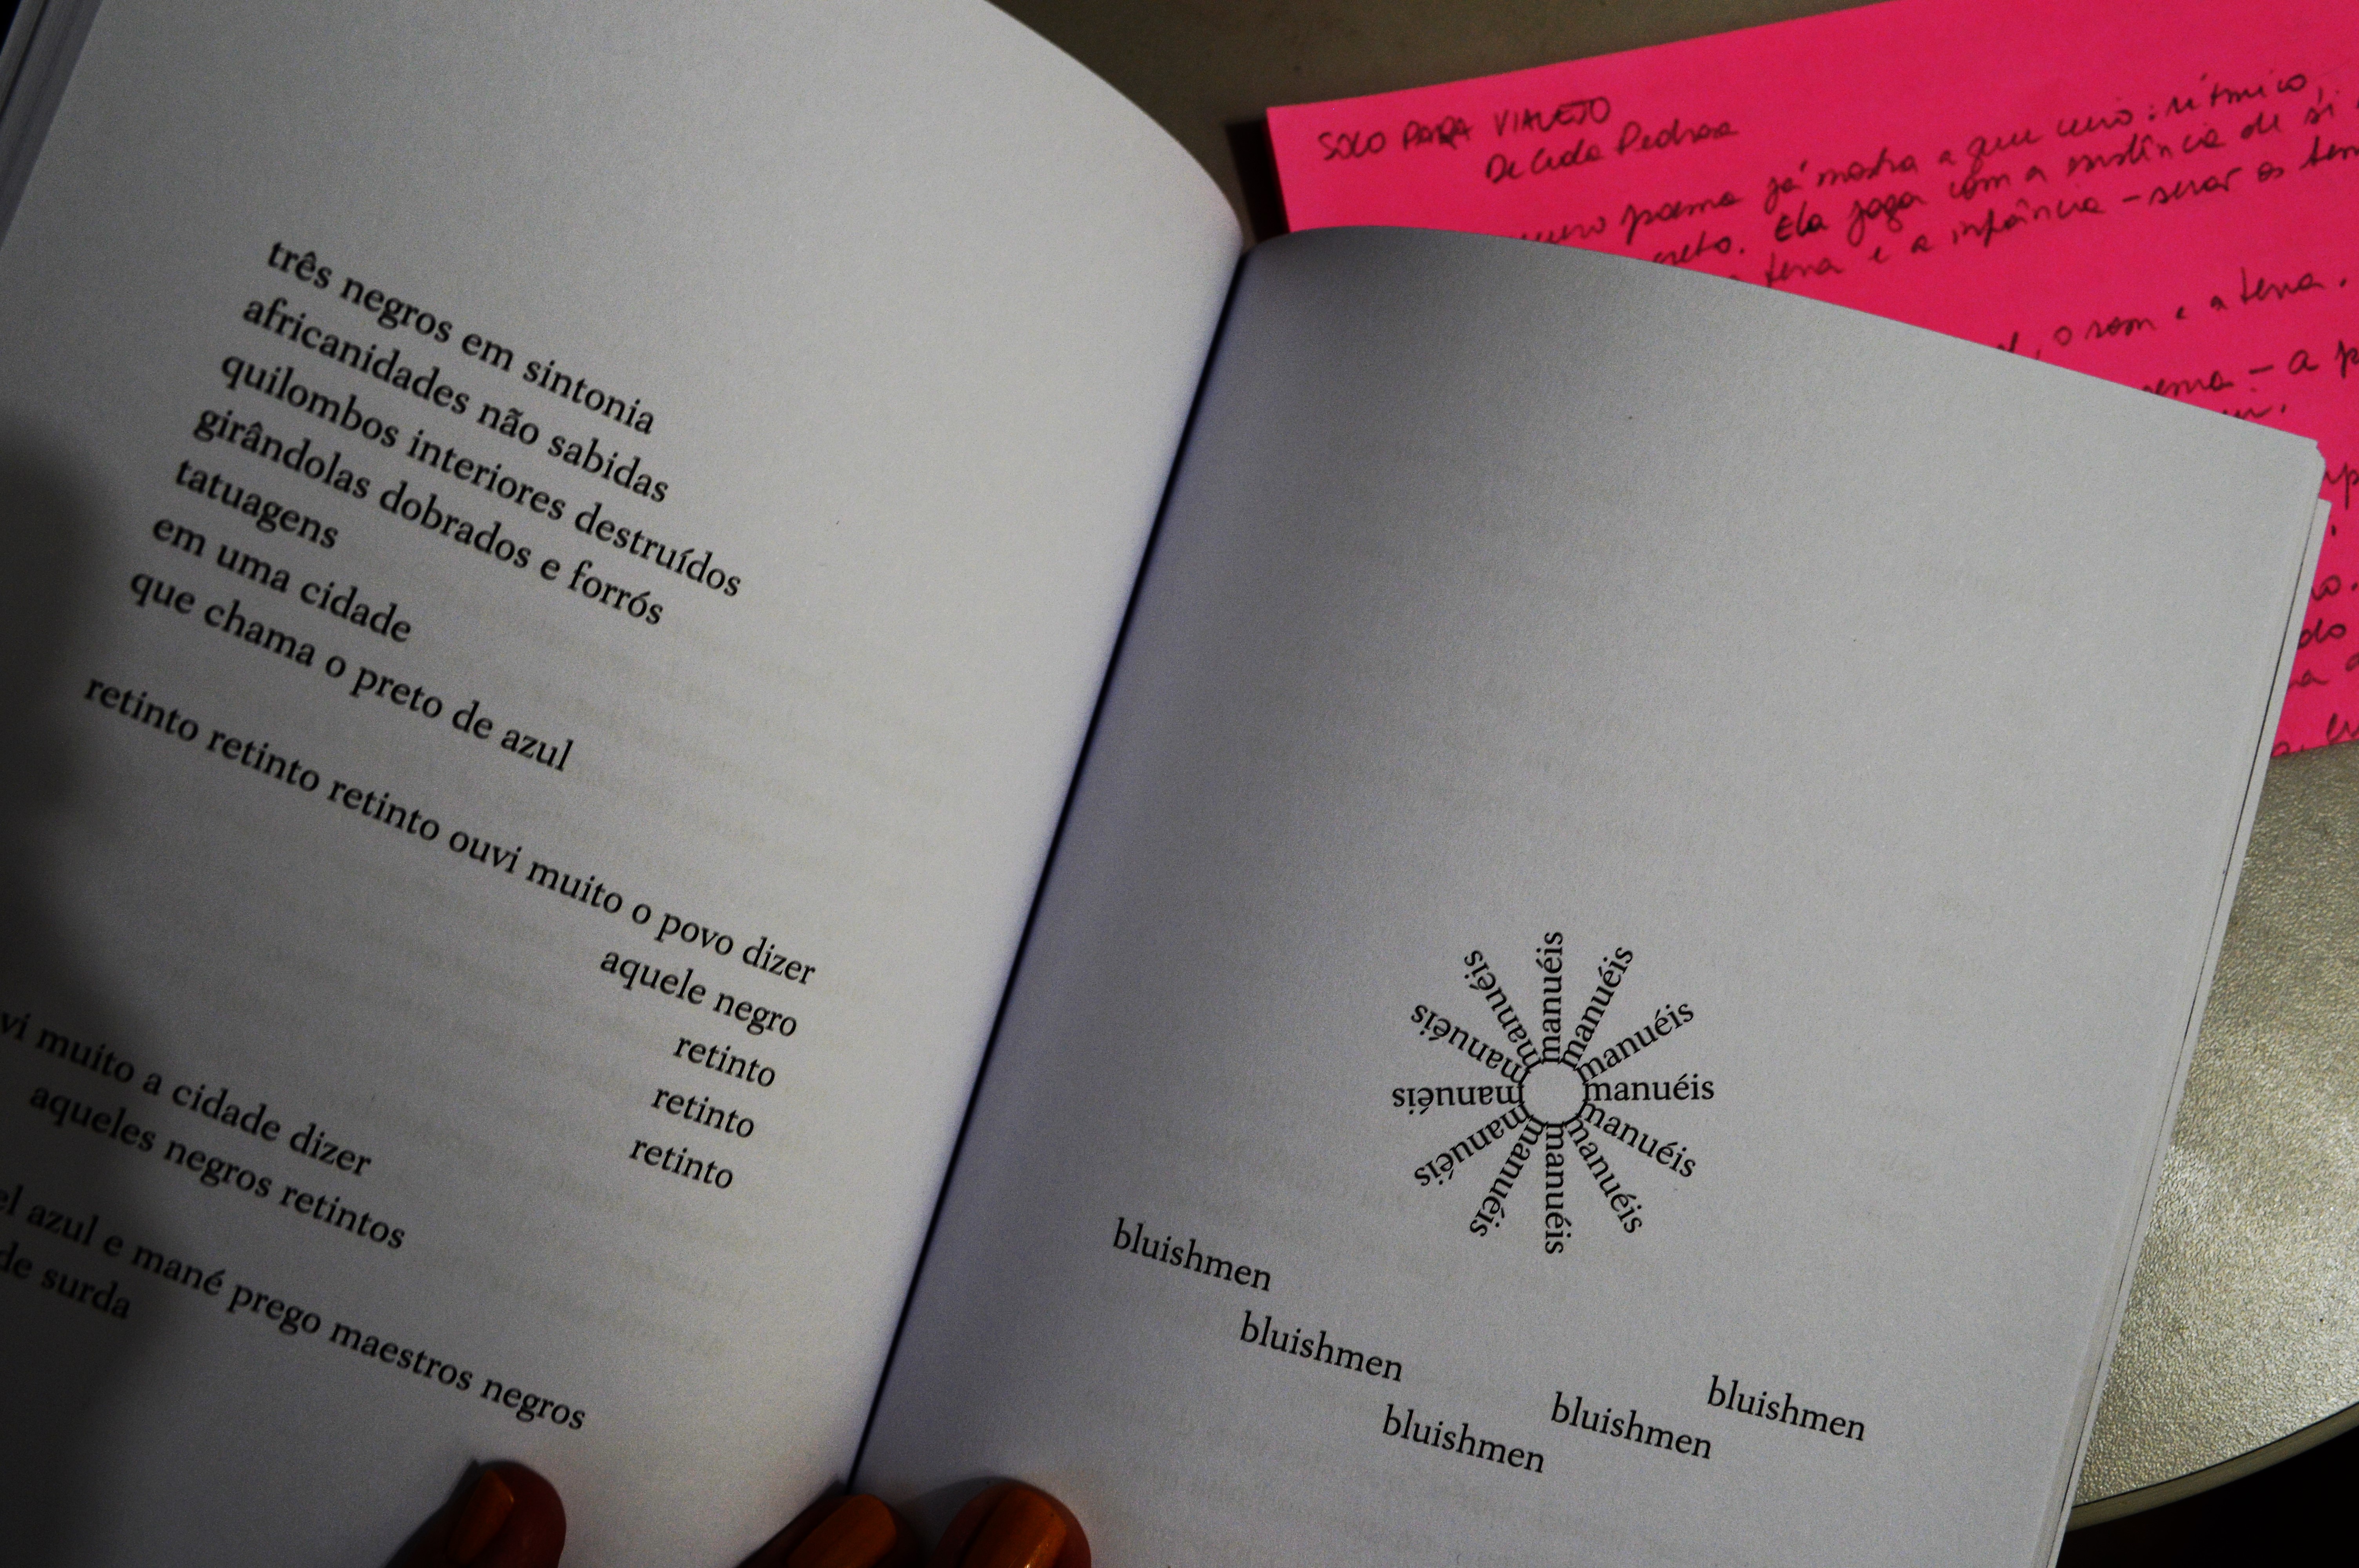 três negros em sintonia
africanidades não sabidas
quilombos interiores destruídos
girândolas dobrados e forrós
tatuagens
em uma cidade
que chama o preto de azul
retinto retinto retinto ouvi muito o povo dizer
aquele negro
retinto
retinto
retinto
vi muito a cidade dizer
aqueles negros retintos
el azul e mané prego maestros negros
de surda
manuéis
manuéis
manuéis
manuéis
manuéis
manuéis
manuéis
manuéis
manuéis
manuéis
manuéis
manuéis
bluishmen
bluishmen
bluishmen
bluishmen
bluishmen
SOLO PARA VIALEJO
De Cida Pedrosa
poema já mostra a que veio: rítmico,
Ela joga com a existência de si
terra e a infância - serar os
, o som e a terra.
- a